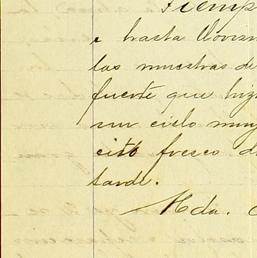 Tiemp
hasta
las muestras de
fuerte que
un cielo muy
cito fresco d
tarde.
Mda.